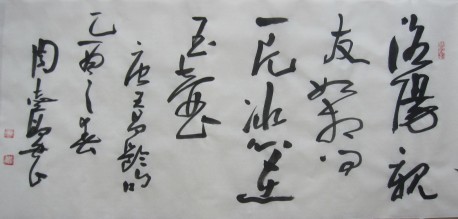 洛陽親
友如相问
一片冰心在
玉壺
唐王昌齡
乙酉之春
周